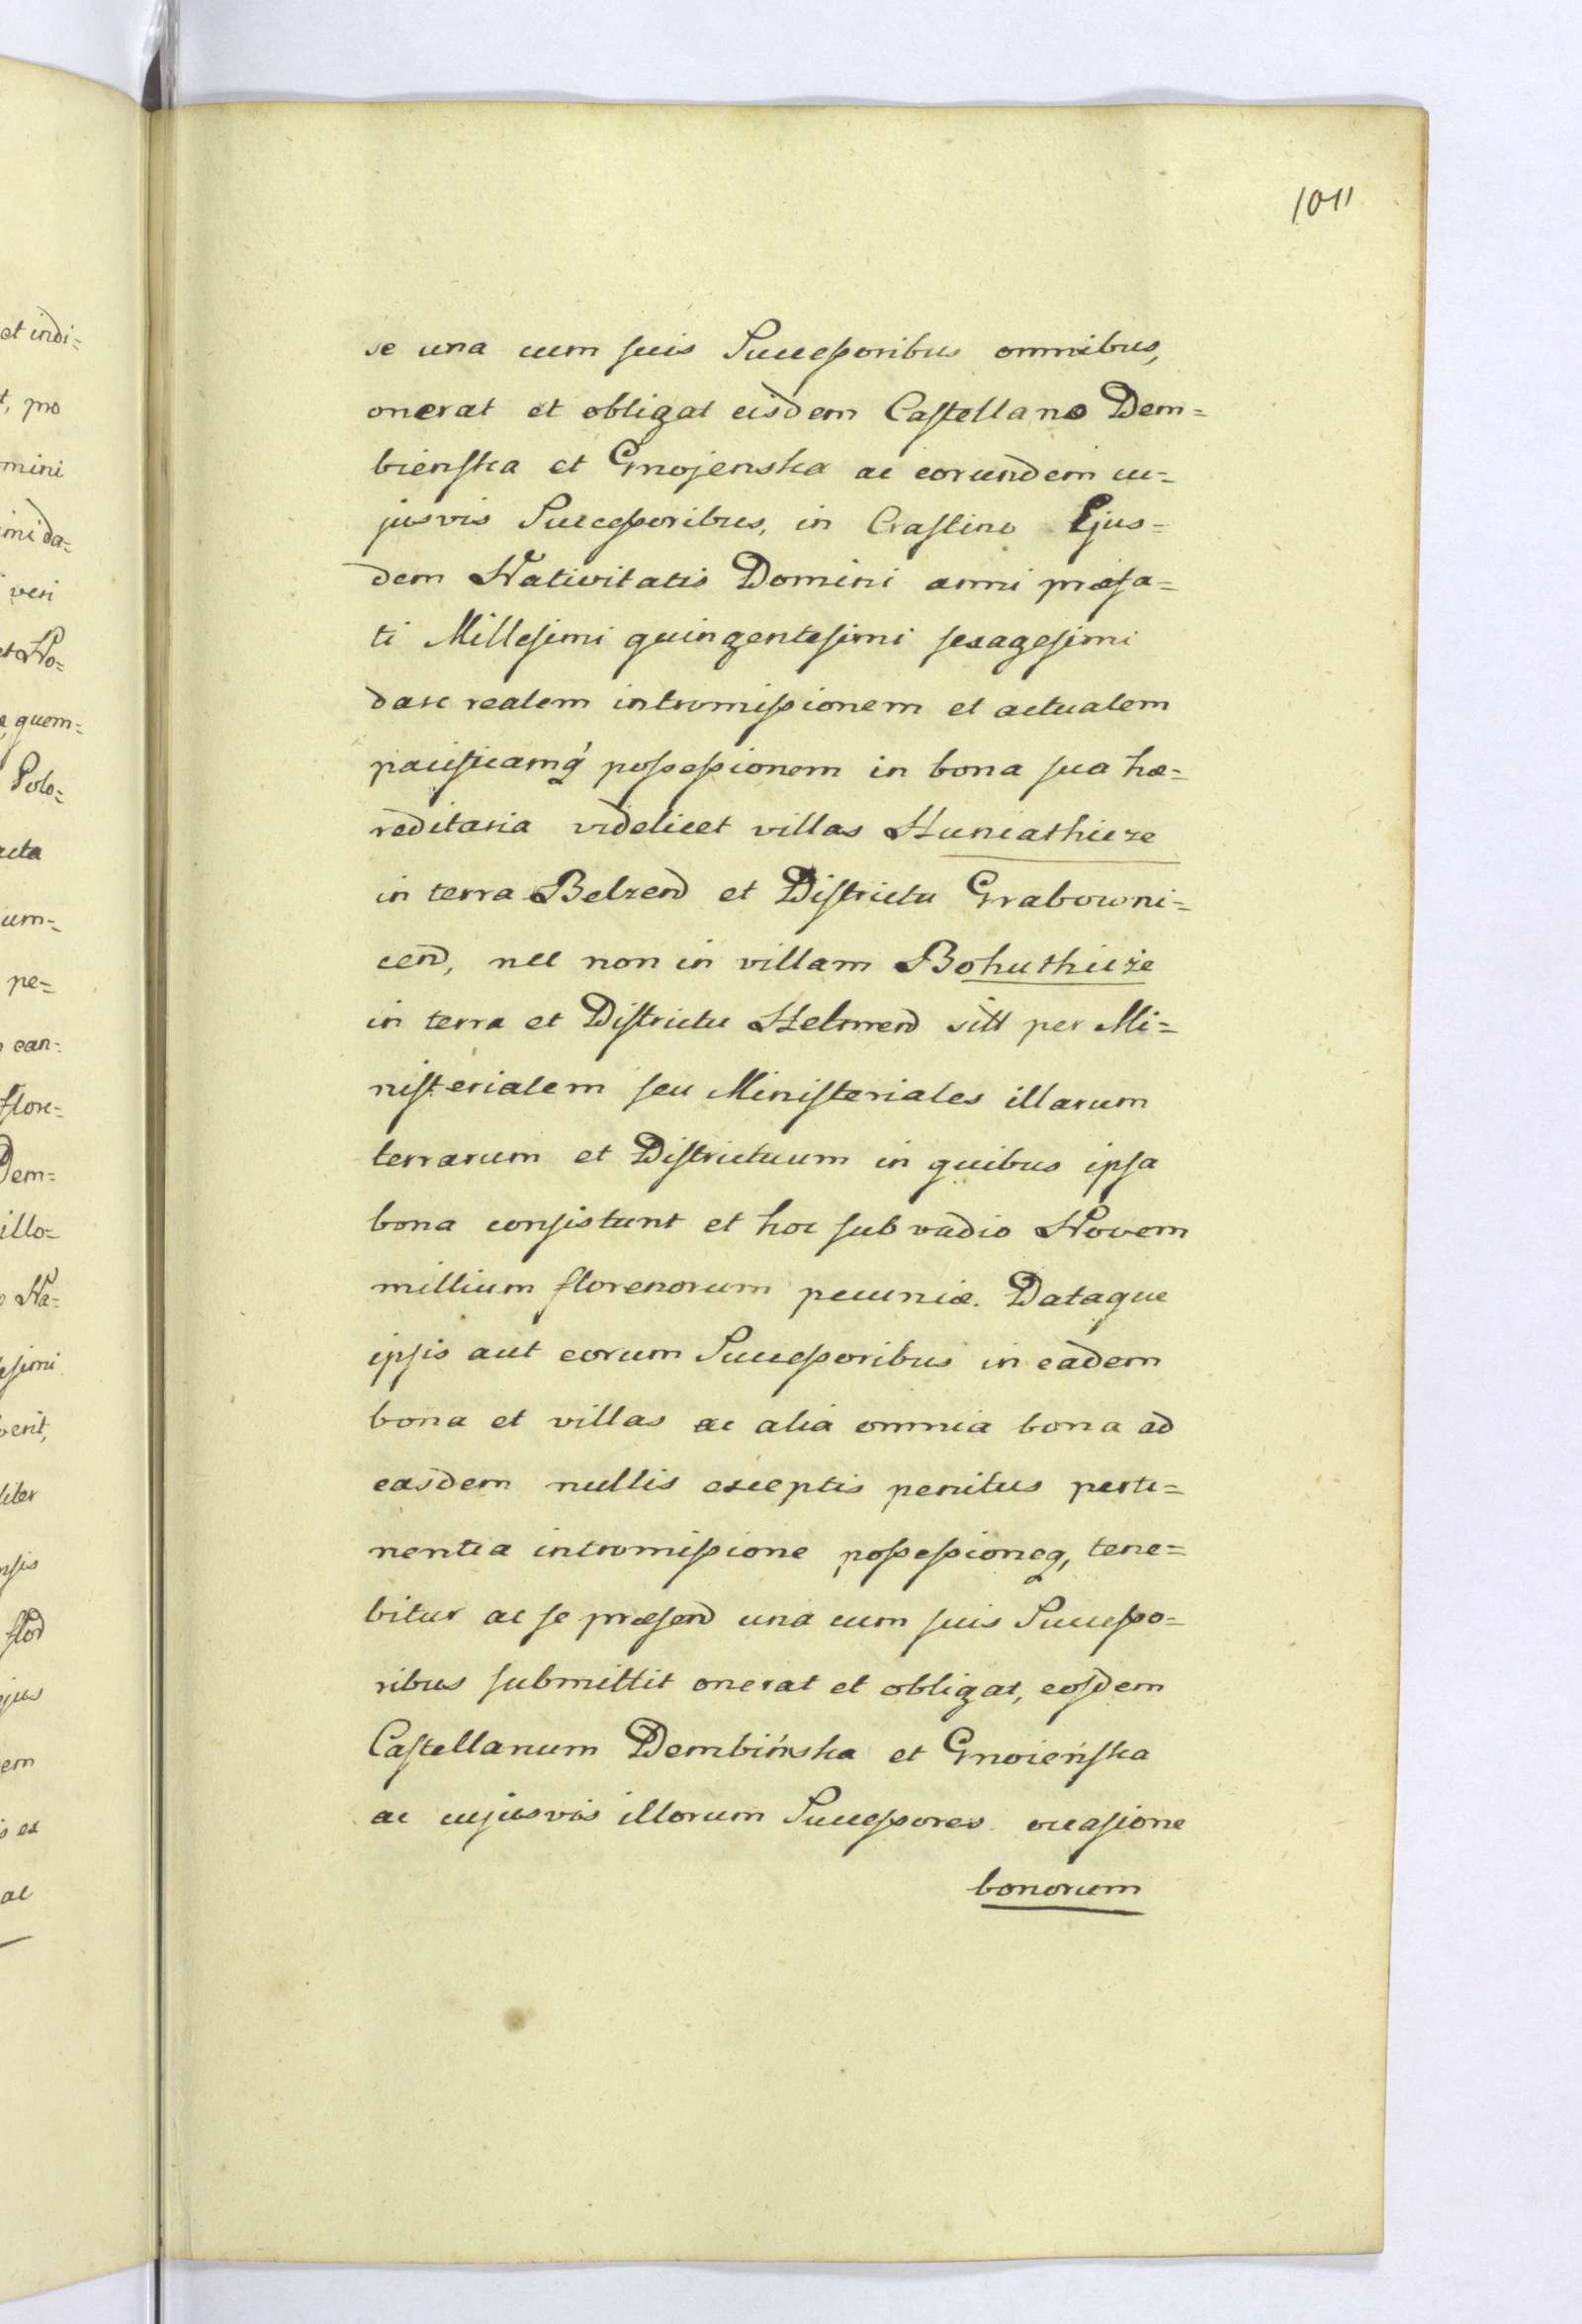 1011
se una cum suis Successoribus omnibus,
onerat et obligat eisdem Castellano Dem=
bienska et Gnojenska ac eorundem cu=
jusvis Successoribus, in Crastino Ejus=
dem Nativitatis Domini anni præfa=
ti Millesimi quingentesimi sexagesimi
dare realem intromissionem et actualem
pacificamq́ possessionem in bona sua hæ=
reditaria videlicet villas Huniathicze
in terra Belzen̄ et Districtu Grabowni=
cen̄, nec non in villam Bohuthicże
in terra et Districtu Helmen̄ sitt per Mi=
nisterialem seu Ministeriales illarum
terrarum et Districtuum in quibus ipsa
bona consistunt et hoc sub vadio Novem
millium florenorum pecuniæ. Dataque
ipsis aut eorum Successoribus in eadem
bona et villas ac alia omnia bona ad
easdem nullis exceptis penitus perti=
nentia intromissione possessioneq, tene=
bitur ac se præsen̄ una cum suis Successo=
ribus submittit onerat et obligat, eosdem
Castellanum Dembińska et Gnoieńska
ac cujusvis illorum Successores occasione
bonorum
et indi=
t, pro
mini
imi da=
veri
et No=
quem=
Polo=
acta
ium=
pe=
can=
flore=
Dem=
illo=
Na=
esimi
verit,
liter
nsis
flor̄
ejus
em
ex
ac